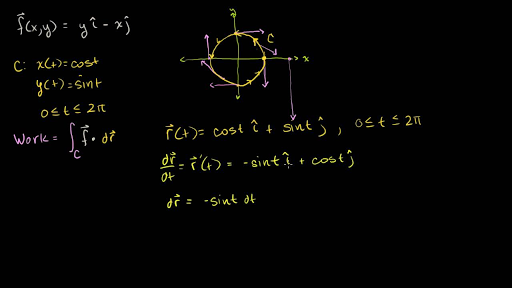 f⃗(x,y) = y î - x ĵ
y
C
x
C: x(t)=cost
y(t)=sint
0≤t≤2π
Work = ∫_C f⃗ · dr⃗
r⃗(t) = cost î + sint ĵ , 0≤t≤2π
dr⃗/dt = r⃗'(t) = -sint î + cost ĵ
dr⃗ = -sint dt